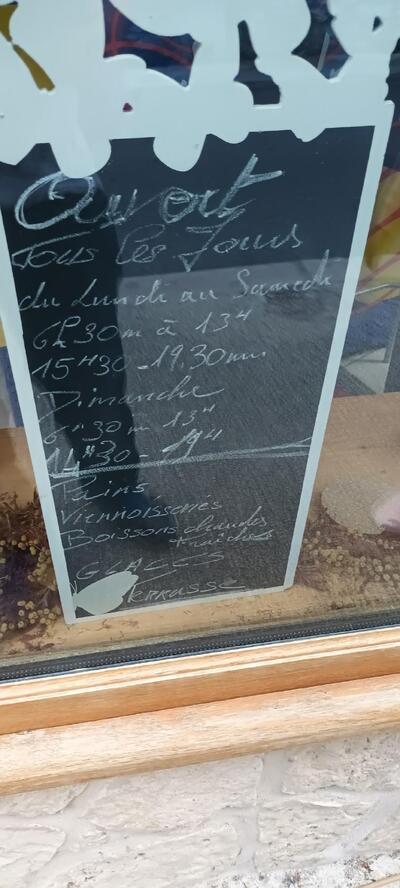 Ouvert
Tous les Jours
du Lundi au Samedi
6h30m à 13H
15H30 - 19.30mn
Dimanche
6h30m 13H
14H30 - 19H
Pains
Viennoiseries
Boissons chaudes
+ fraîches
GLACES
Terrasse